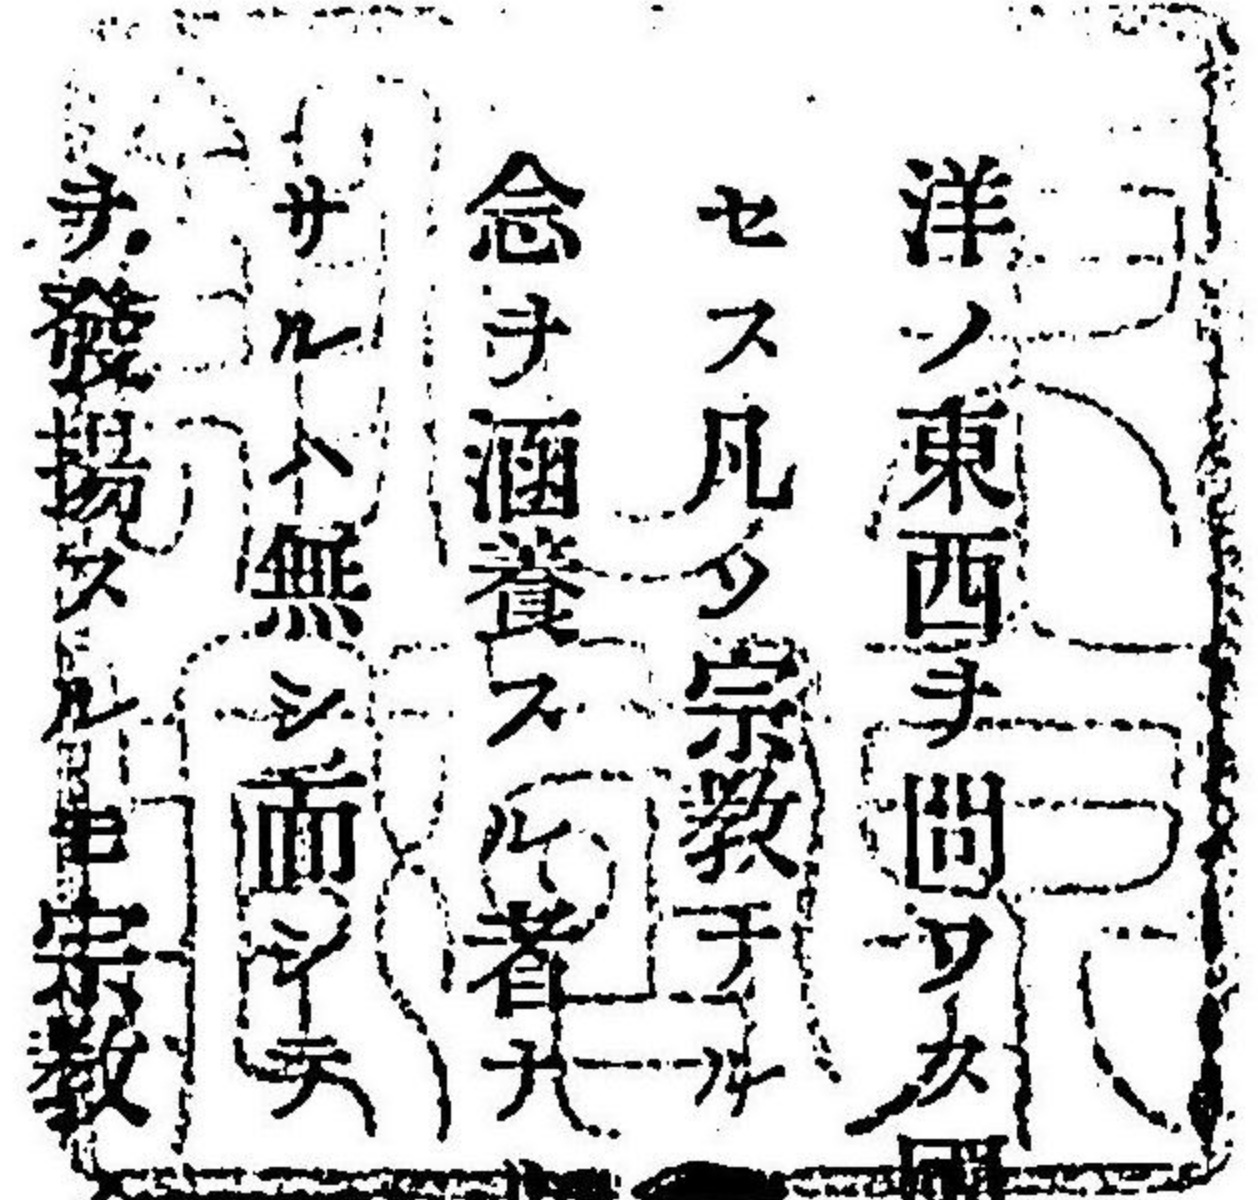 洋ノ東西ヲ問ワス
セス凡ソ宗教ナル
念ヲ涵養スル者ナ
サルハ無シ而シテ
ヲ發揚スル宗教